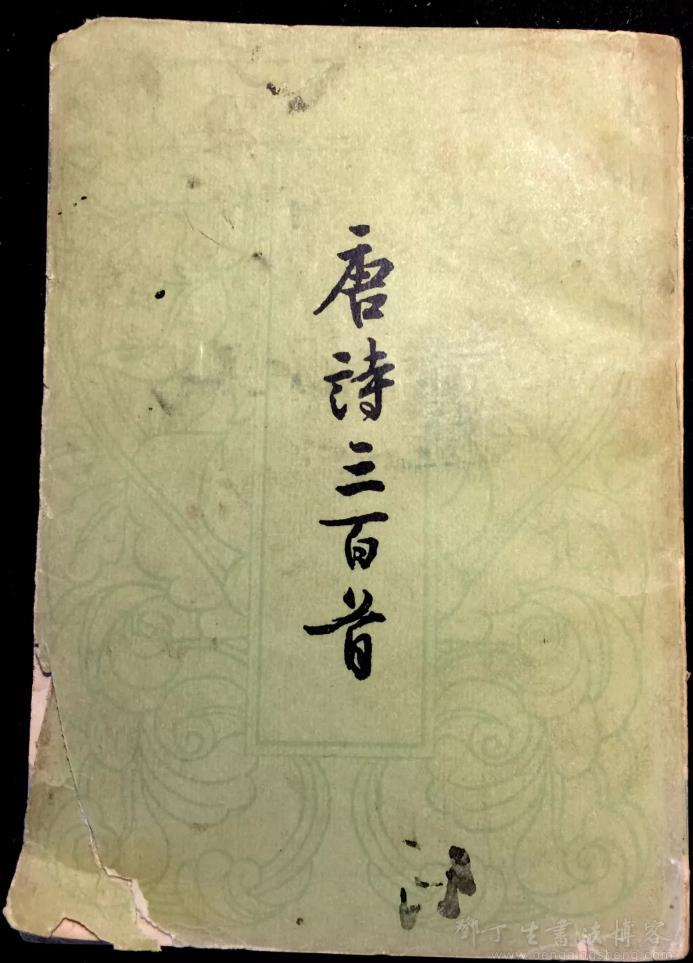 唐詩三百首
鄧丁生書法博客
www.dengdingsheng.com